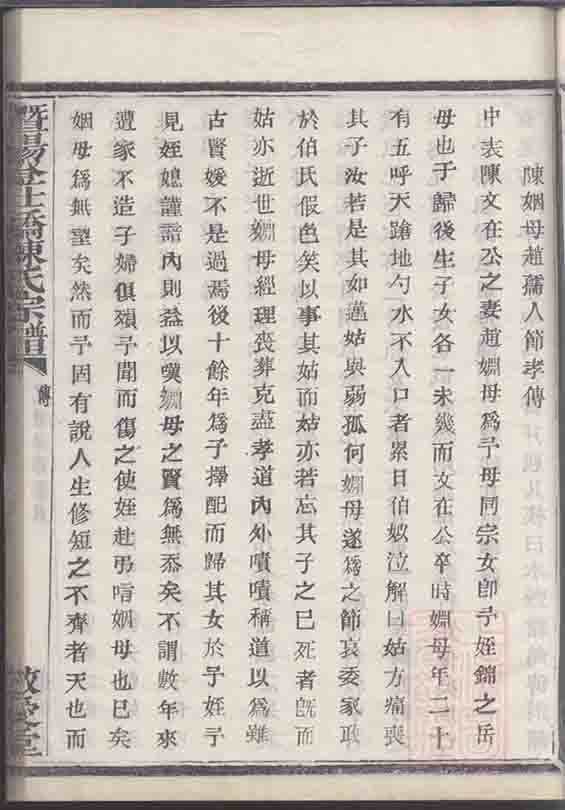 陳姻母趙孺人節孝傳
中表陳文在公之妻趙姻母爲予母同宗女卽予姪錦之岳
母也于歸後生子女各一未幾而文在公卒時姻母年二十
有五呼天蹌地勺水不入口者累日伯姒泣解曰姑方痛喪
其子汝若是其如邁姑與弱孤何姻母遂爲之節哀委家政
於伯氏假色笑以事其姑而姑亦若忘其子之已死者旣而
姑亦逝世姻母經理喪葬克盡孝道內外嘖嘖稱道以爲雖
古賢媛不是過焉後十餘年爲子擇配而歸其女於予姪予
見姪媳謹諳內則益以嘆姻母之賢爲無忝矣不謂數年來
遭家不造子婦俱殞予聞而傷之使姪赴弔唁姻母也已矣
姻母爲無望矣然而予固有說人生修短之不齊者天也而
暨陽金社橋陳氏宗譜
傳
敬受堂